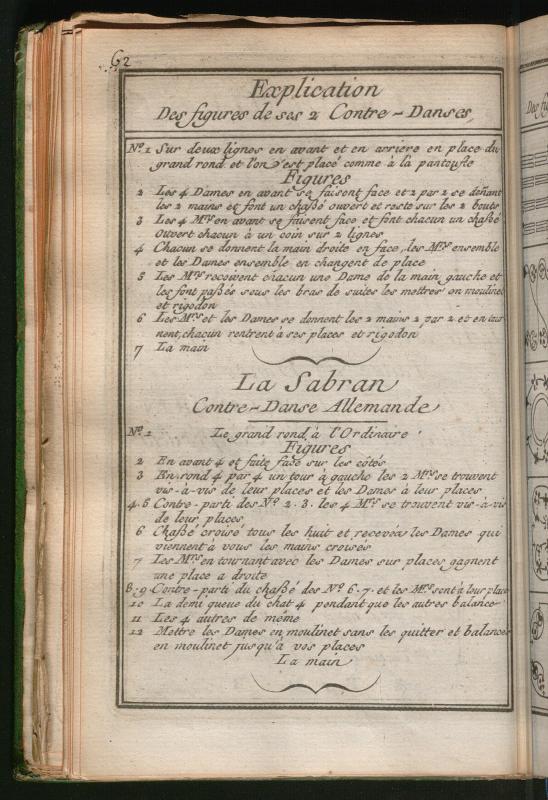 62
Explication
Des figures de ses 2 Contre-Danses
Nº. 1 Sur deux lignes en avant et en arriere en place du
grand rond et l'on s'est placé comme à la pantoufle
Figures
2 Les 4 Dames en avant se faisent face et 2 par 2 se donant
les 2 mains et font un chaßé ouvert et reste sur les 2 bouts
3 Les 4 Mrs en avant se faisent face et font chacun un chaßé
Ouvert chacun à un coin sur 2 lignes
4 Chacun se donnent la main droite en face, les Mrs ensemble
et les Dames ensemble en changent de place
5 Les Mrs recoivent chacun une Dame de la main gauche et
les font paßés sous les bras de suites les mettres en moulinet
et rigodon
6 Les Mrs et les Dames se donnent les 2 mains 2 par 2 et en tour
nent, chacun rentrent à ses places et rigodon
7 La main
La Sabran
Contre-Danse Allemande
Nº. 1 Le grand rond à l'Ordinaire
Figures
2 En avant 4 et faite face sur les côtés
3 En rond 4 par 4 un tour à gauche les 2 Mrs se trouvent
vis-à-vis de leur places et les Dames à leur places
4.5 Contre-parti des Nº 2.3. les 4 Mrs se trouvent vis-à-vis
de leur places
6 Chaßé croisé tous les huit et recevés les Dames qui
viennent à vous les mains croisés
7 Les Mrs en tournant avec les Dames sur places gagnent
une place a droite
8.9 Contre-parti du chaßé des Nº 6.7. et les Mrs sont à leur place
10 La demi queue du chat 4 pendant que les autres balance
11 Les 4 autres de même
12 Mettre les Dames en moulinet sans les quitter et balancés
en moulinet jusqu'à vos places
La main
Des fi